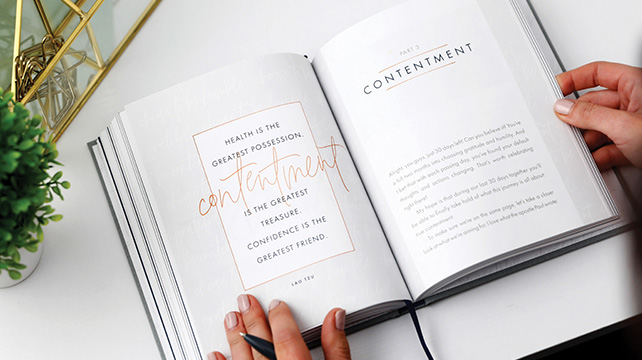 HEALTH IS THE
GREATEST POSSESSION.
contentment
IS THE GREATEST
TREASURE.
CONFIDENCE IS THE
GREATEST FRIEND.
LAO TZU
PART 3
CONTENTMENT
Alright you guys, just 30 days left! Can you believe it? You're
a full two months into choosing gratitude and humility. And
I bet that with each passing day, you've found your default
thoughts and actions changing. That's worth celebrating
right there!
My hope is that during our last 30 days together you'll
be able to finally take hold of what this journey is all about:
true contentment.
To make sure we're on the same page, let's take a closer
look at what we're aiming for. I love what the apostle Paul wrote